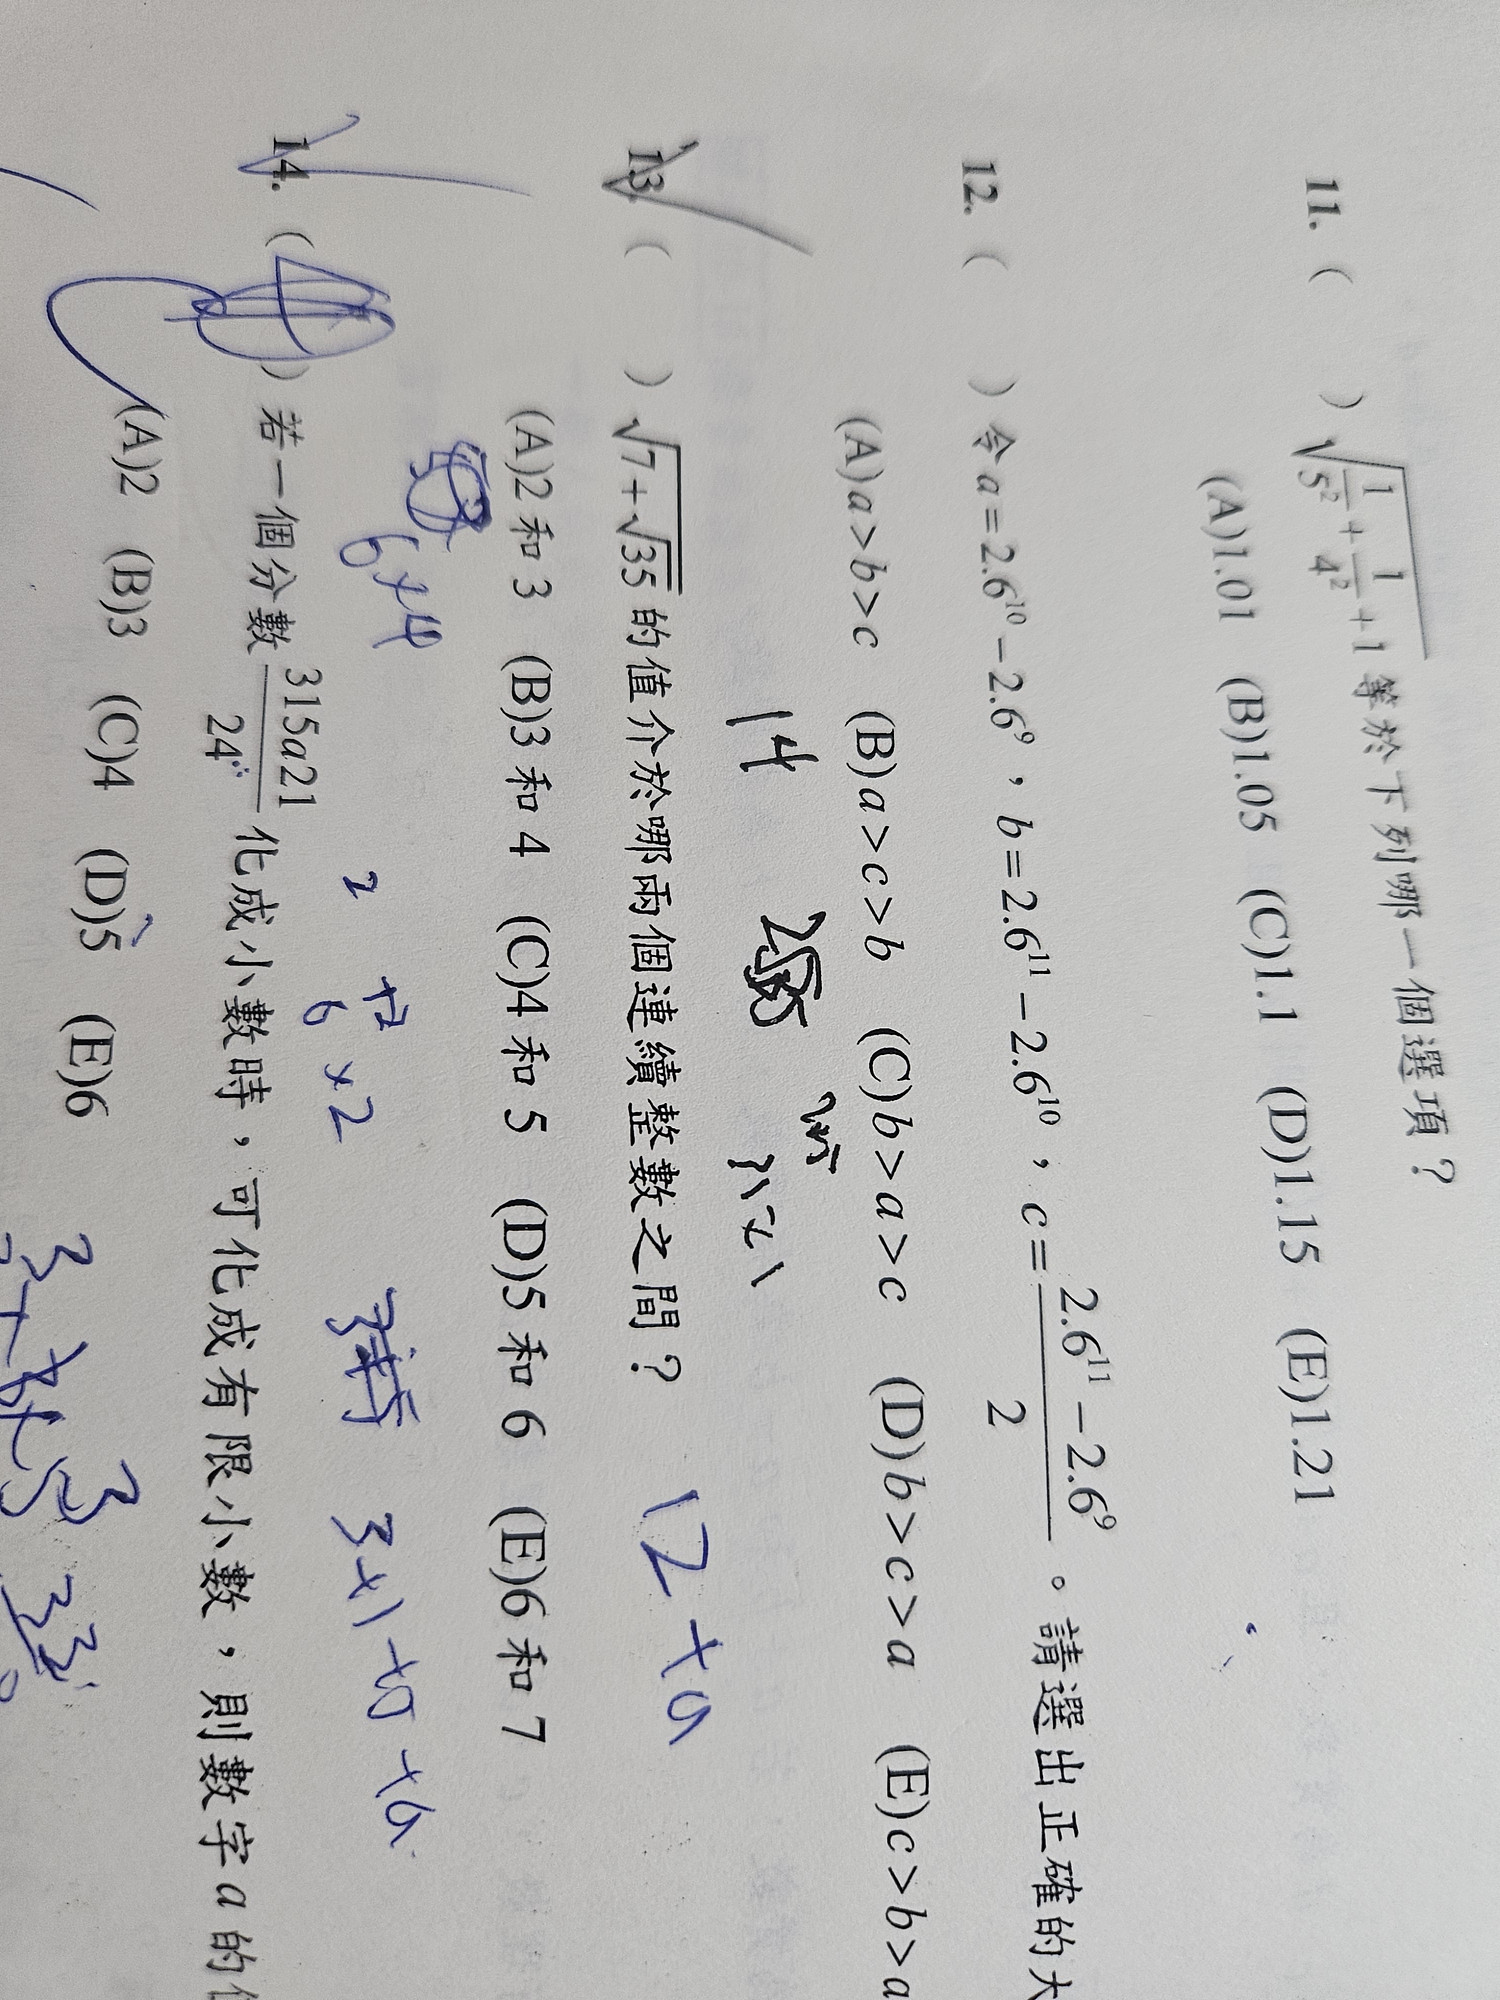 11. ( ) √(1/5² + 1/4² + 1) 等於下列哪一個選項？
(A)1.01 (B)1.05 (C)1.1 (D)1.15 (E)1.21
12. ( ) 令 a=2.6¹⁰−2.6⁹，b=2.6¹¹−2.6¹⁰，c=(2.6¹¹−2.6⁹)/2。請選出正確的大
(A)a>b>c (B)a>c>b (C)b>a>c (D)b>c>a (E)c>b>a
14
13. ( ) √(7+√35) 的值介於哪兩個連續整數之間？
12+a
(A)2 和 3 (B)3 和 4 (C)4 和 5 (D)5 和 6 (E)6 和 7
6×4 2 +2 6 ×2 3+1+0+a
14. ( ) 若一個分數 315a21/24 化成小數時，可化成有限小數，則數字 a 的
(A)2 (B)3 (C)4 (D)5 (E)6